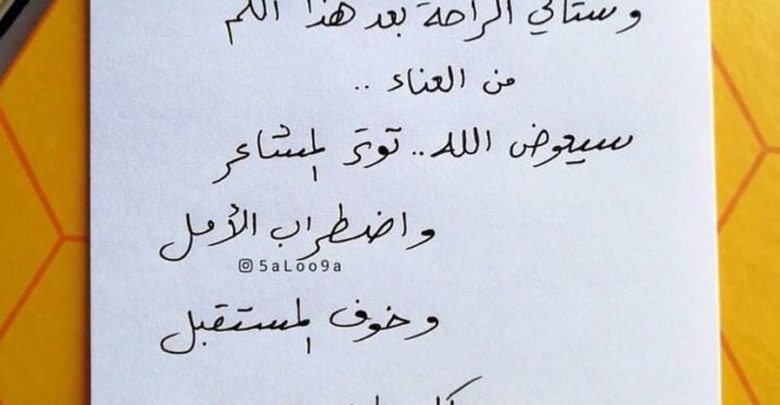 وستأتي الراحة بعد هذا الكم
من العناء ..
سيعوض الله.. توتر المشاعر
واضطراب الأمل
5aLoo9a
وخوف المستقبل